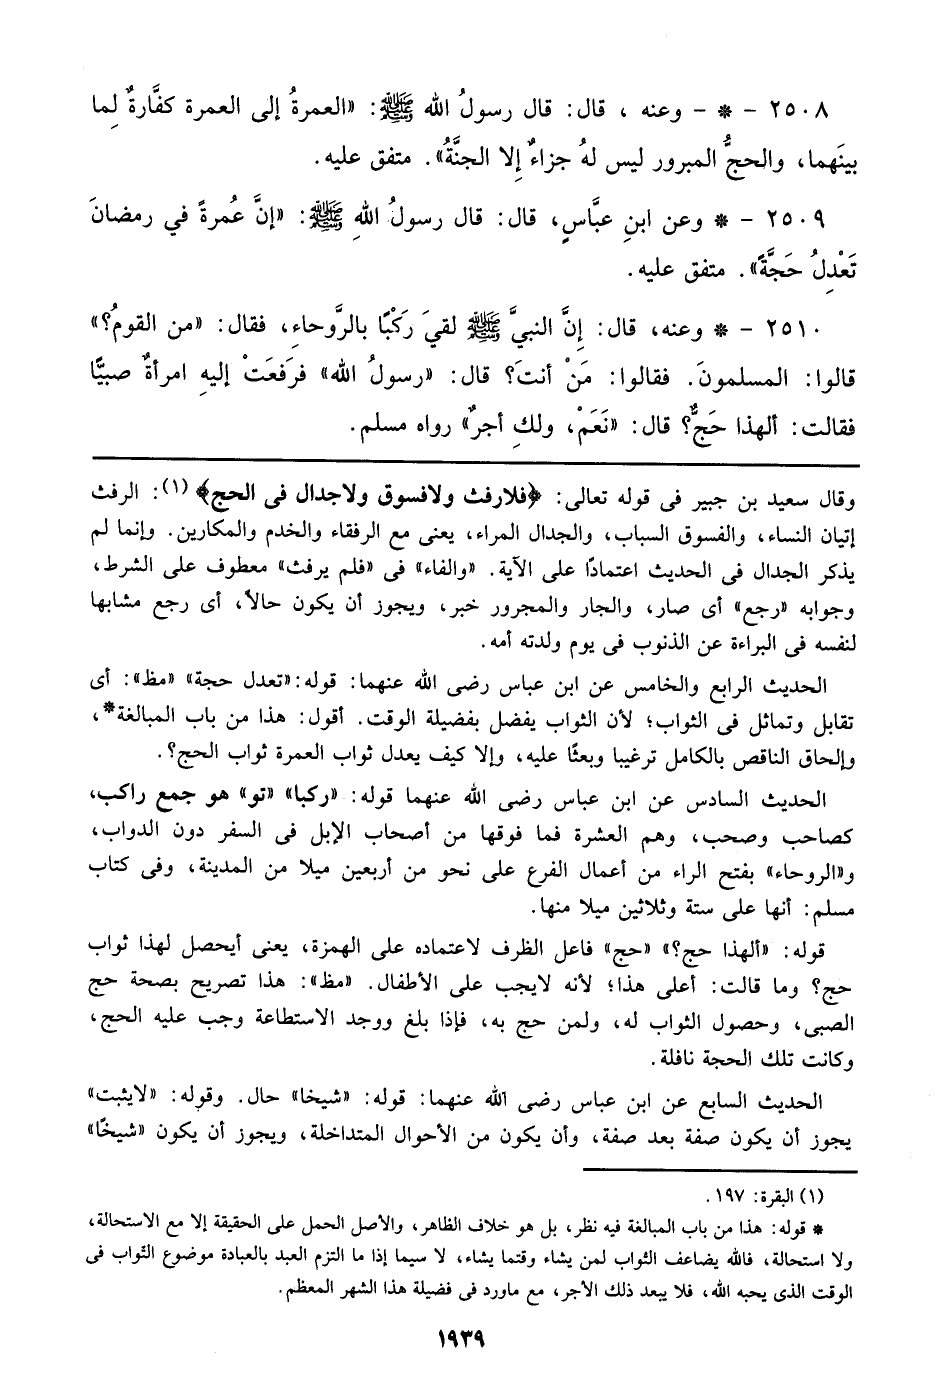 ٢٥٠٨ - * - وعنه ، قال: قال رسولُ الله ﷺ: «العمرةُ إلى العمرة كفَّارةٌ لِما
بينَهما، والحجُّ المبرور ليس لهُ جزاءٌ إِلا الجنَّةُ». متفق عليه.
٢٥٠٩ - * وعن ابنِ عبَّاسٍ، قال: قال رسولُ اللهِ ﷺ: «إنَّ عُمرةً في رمضانَ
تَعْدِلُ حَجَّةً». متفق عليه.
٢٥١٠ - * وعنه، قال: إِنَّ النبيَّ ﷺ لقيَ رَكْبًا بالرَّوحاءِ، فقال: «من القومُ؟»
قالوا: المسلمونَ. فقالوا: مَنْ أنتَ؟ قال: «رسولُ الله» فرَفَعَتْ إليهِ امرأةٌ صبيًّا
فقالت: ألهذا حَجٌّ؟ قال: «نَعَمْ، ولكِ أجرٌ» رواه مسلم.
وقال سعيد بن جبير فى قوله تعالى: ﴿فلارفث ولافسوق ولاجدال فى الحج﴾ (١): الرفث
إتيان النساء، والفسوق السباب، والجدال المراء، يعنى مع الرفقاء والخدم والمكارين. وإنما لم
يذكر الجدال فى الحديث اعتمادًا على الآية. «والفاء» فى «فلم يرفث» معطوف على الشرط،
وجوابه «رجع» أى صار، والجار والمجرور خبر، ويجوز أن يكون حالاً، أى رجع مشابها
لنفسه فى البراءة عن الذنوب فى يوم ولدته أمه.
الحديث الرابع والخامس عن ابن عباس رضى الله عنهما: قوله:«تعدل حجة» «مظ»: أى
تقابل وتماثل فى الثواب؛ لأن الثواب يفضل بفضيلة الوقت. أقول: هذا من باب المبالغة*،
وإلحاق الناقص بالكامل ترغيبا وبعثًا عليه، وإلا كيف يعدل ثواب العمرة ثواب الحج؟.
الحديث السادس عن ابن عباس رضى الله عنهما قوله: «ركبا» «تو» هو جمع راكب،
كصاحب وصحب، وهم العشرة فما فوقها من أصحاب الإبل فى السفر دون الدواب،
و«الروحاء» بفتح الراء من أعمال الفرع على نحو من أربعين ميلا من المدينة، وفى كتاب
مسلم: أنها على ستة وثلاثين ميلا منها.
قوله: «ألهذا حج؟» «حج» فاعل الظرف لاعتماده على الهمزة، يعنى أيحصل لهذا ثواب
حج؟ وما قالت: أعلى هذا؛ لأنه لايجب على الأطفال. «مظ»: هذا تصريح بصحة حج
الصبى، وحصول الثواب له، ولمن حج به، فإذا بلغ ووجد الاستطاعة وجب عليه الحج،
وكانت تلك الحجة نافلة.
الحديث السابع عن ابن عباس رضى الله عنهما: قوله: «شيخا» حال. وقوله: «لايثبت»
يجوز أن يكون صفة بعد صفة، وأن يكون من الأحوال المتداخلة، ويجوز أن يكون «شيخًا»
(١) البقرة: ١٩٧.
* قوله: هذا من باب المبالغة فيه نظر، بل هو خلاف الظاهر، والأصل الحمل على الحقيقة إلا مع الاستحالة،
ولا استحالة، فالله يضاعف الثواب لمن يشاء وقتما يشاء، لا سيما إذا ما التزم العبد بالعبادة موضوع الثّواب فى
الوقت الذى يحبه الله، فلا يبعد ذلك الأجر، مع ماورد فى فضيلة هذا الشهر المعظم.
١٩٣٩